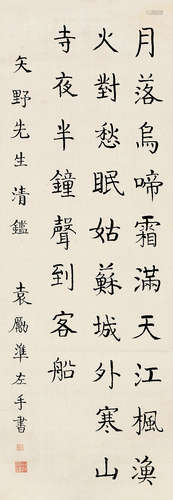 月落烏啼霜滿天江楓漁
火對愁眠姑蘇城外寒山
寺夜半鐘聲到客船
矢野先生清鑑
袁勵準左手書